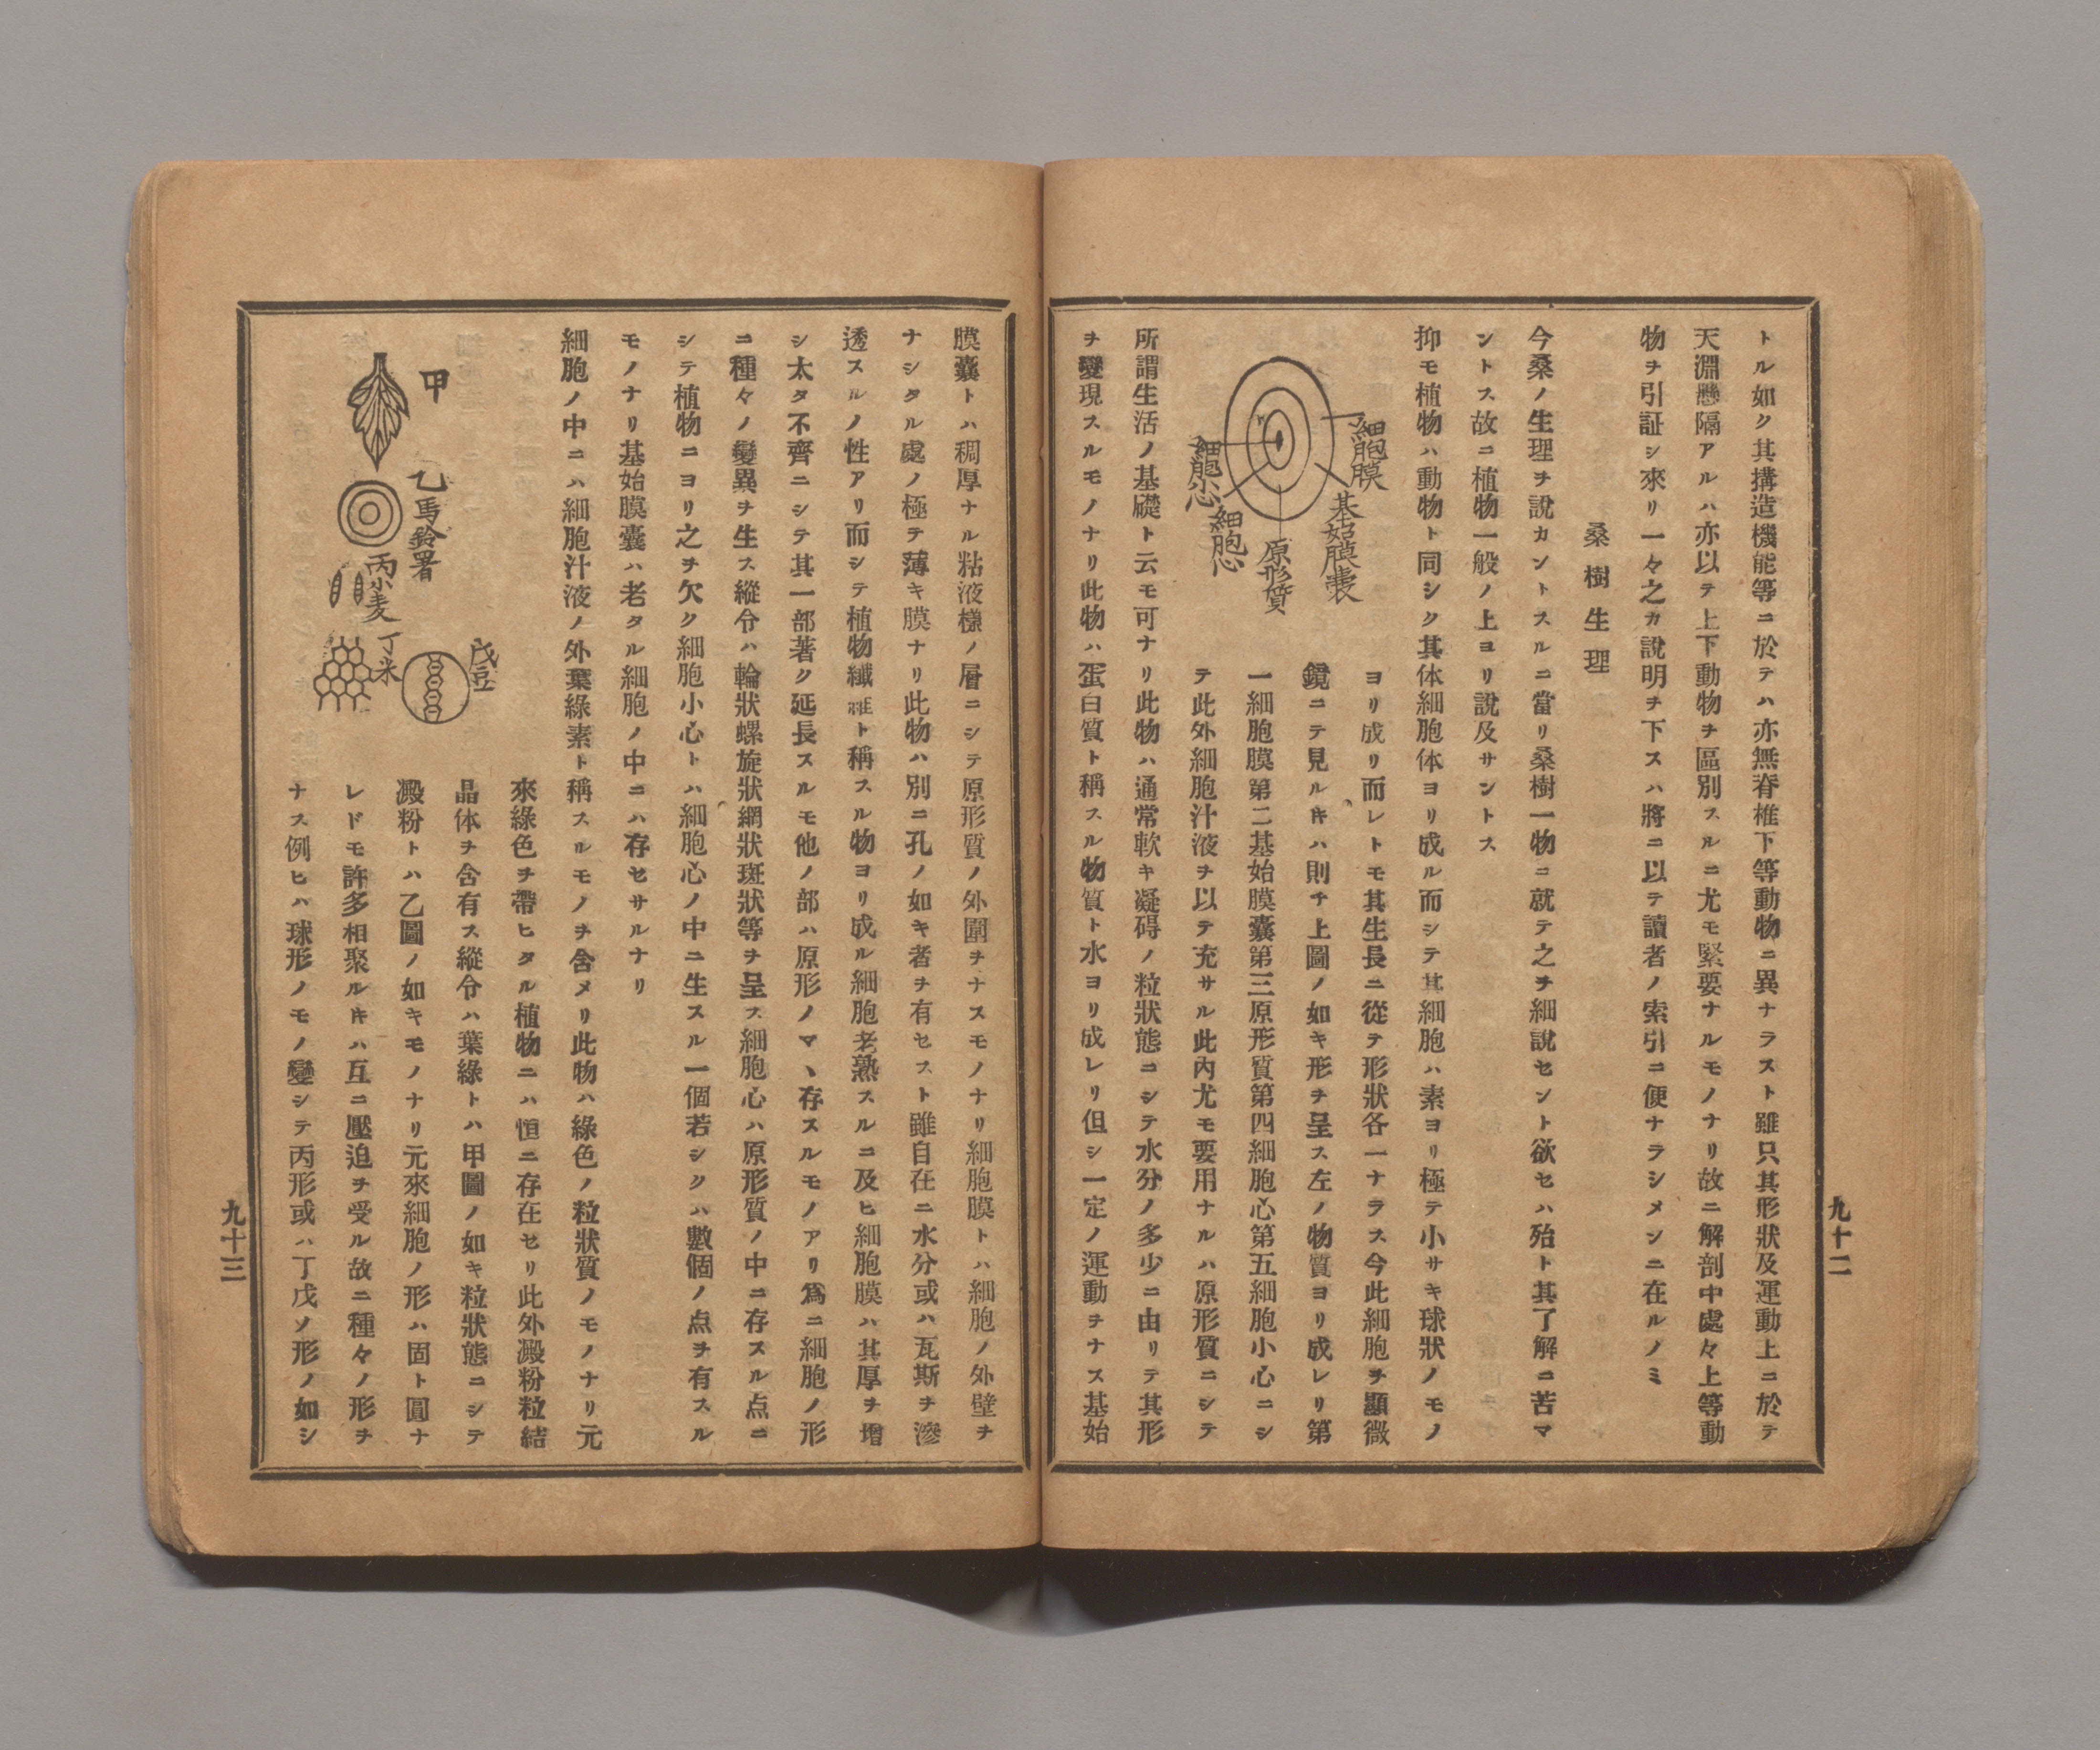 トル如ク其搆造機能等ニ於テハ亦無脊椎下等動物ニ異ナラスト雖只其形狀及運動上ニ於テ
天淵懸隔アルハ亦以テ上下動物ヲ區別スルニ尤モ緊要ナルモノナリ故ニ解剖中處々上等動
物ヲ引証シ來リ一々之カ說明ヲ下スハ將ニ以テ讀者ノ索引ニ便ナラシメンニ在ルノミ
桑樹生理
今桑ノ生理ヲ說カントスルニ當リ桑樹一物ニ就テ之ヲ細說セント欲セハ殆ト其了解ニ苦マ
ントス故ニ植物一般ノ上ヨリ說及サントス
抑モ植物ハ動物ト同シク其体細胞体ヨリ成ル而シテ其細胞ハ素ヨリ極テ小サキ球狀ノモノ
ヨリ成リ而レトモ其生長ニ從テ形狀各一ナラス今此細胞ヲ顯微
鏡ニテ見ル𪜈ハ則チ上圖ノ如キ形ヲ呈ス左ノ物質ヨリ成レリ第
一細胞膜第二基始膜囊第三原形質第四細胞心第五細胞小心ニシ
テ此外細胞汁液ヲ以テ充サル此內尤モ要用ナルハ原形質ニシテ
細胞膜
基始膜囊
原形質
細胞心
細胞小心
所謂生活ノ基礎ト云モ可ナリ此物ハ通常軟キ凝碍ノ粒狀態ニシテ水分ノ多少ニ由リテ其形
ヲ變現スルモノナリ此物ハ蛋白質ト稱スル物質ト水ヨリ成レリ但シ一定ノ運動ヲナス基始
九十二
膜囊トハ稠厚ナル粘液樣ノ層ニシテ原形質ノ外圍ヲナスモノナリ細胞膜トハ細胞ノ外壁ヲ
ナシタル處ノ極テ薄キ膜ナリ此物ハ別ニ孔ノ如キ者ヲ有セスト雖自在ニ水分或ハ瓦斯ヲ滲
透スルノ性アリ而シテ植物纎維ト稱スル物ヨリ成ル細胞老熟スルニ及ヒ細胞膜ハ其厚ヲ增
シ太タ不齊ニシテ其一部著ク延長スルモ他ノ部ハ原形ノマヽ存スルモノアリ爲ニ細胞ノ形
ニ種々ノ變異ヲ生ス縱令ハ輪狀螺旋狀網狀斑狀等ヲ呈ス細胞心ハ原形質ノ中ニ存スル点ニ
シテ植物ニヨリ之ヲ欠ク細胞小心トハ細胞心ノ中ニ生スル一個若シクハ數個ノ点ヲ有スル
モノナリ基始膜囊ハ老タル細胞ノ中ニハ存セサルナリ
細胞ノ中ニハ細胞汁液ノ外葉綠素ト稱スルモノヲ含メリ此物ハ綠色ノ粒狀質ノモノナリ元
來綠色ヲ帶ヒタル植物ニハ恒ニ存在セリ此外澱粉粒結
晶体ヲ含有ス縱令ハ葉綠トハ甲圖ノ如キ粒狀態ニシテ
澱粉トハ乙圖ノ如キモノナリ元來細胞ノ形ハ固ト圓ナ
レドモ許多相聚ル𪜈ハ互ニ壓迫ヲ受ル故ニ種々ノ形ヲ
ナス例ヒハ球形ノモノ變シテ丙形或ハ丁戊ノ形ノ如シ
甲
乙馬鈴署
丙小麦
丁米
戊豆
九十三